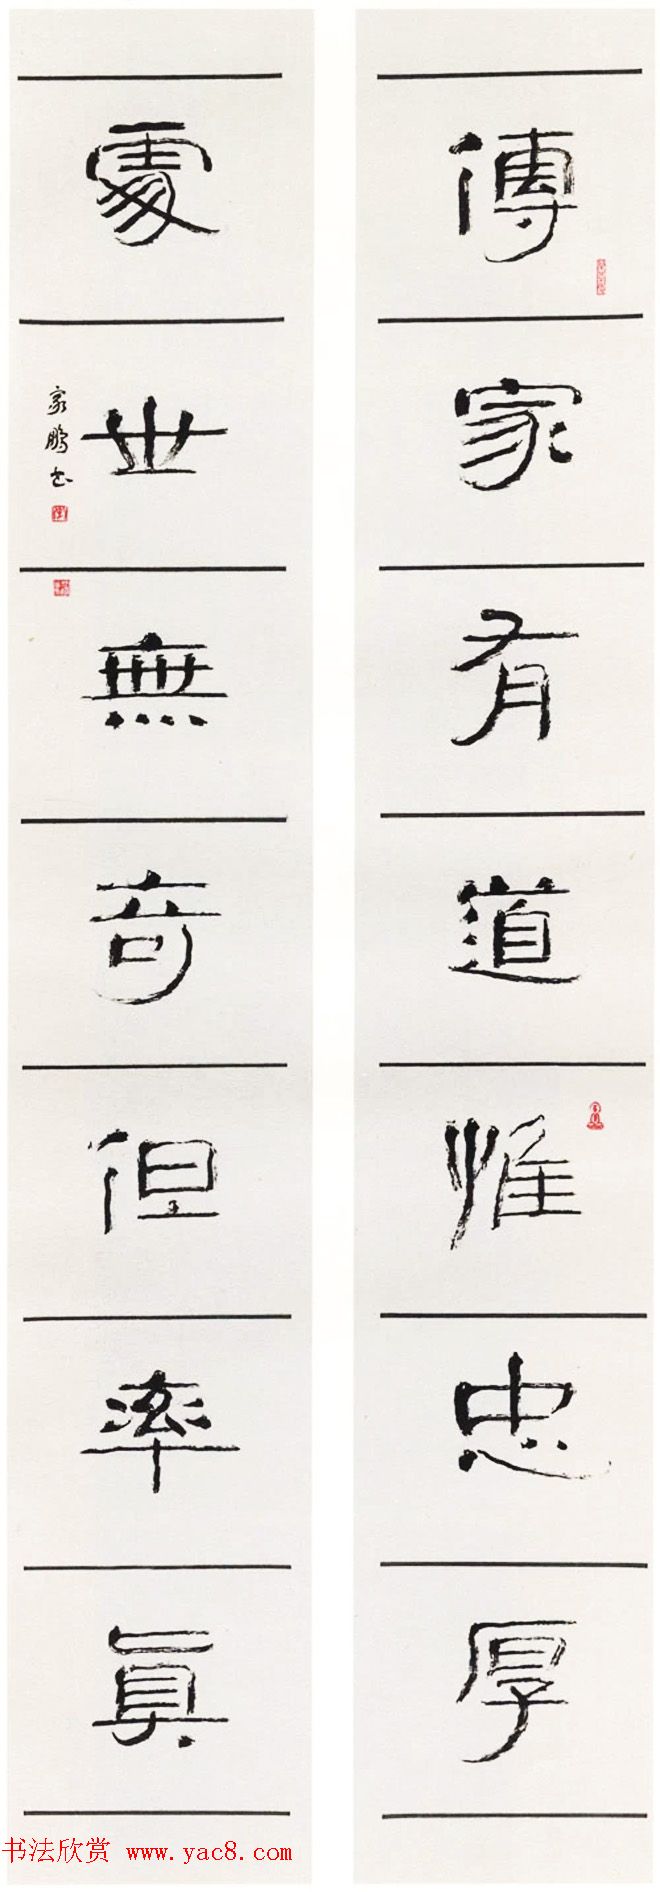 傳家有道惟忠厚
處世無奇但率真
家鵬书
书法欣赏 www.yac8.com